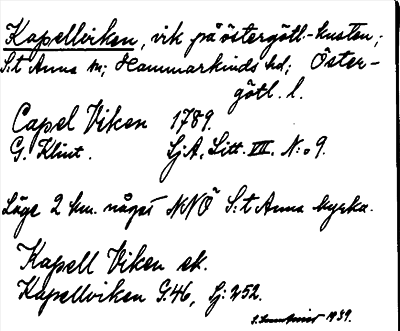 Kapellviken, vik på östergötl.-kusten;
S:t Anna sn; Hammarkinds hd; Öster-
götl. l.
Capel Viken 1789.
G. Klint. SjA, Litt. VII. N:o 9.
Läge 2 km. något NNÖ S:t Anna kyrka.
Kapell Viken ek.
Kapellviken G.46, Sj: 252.
1939.